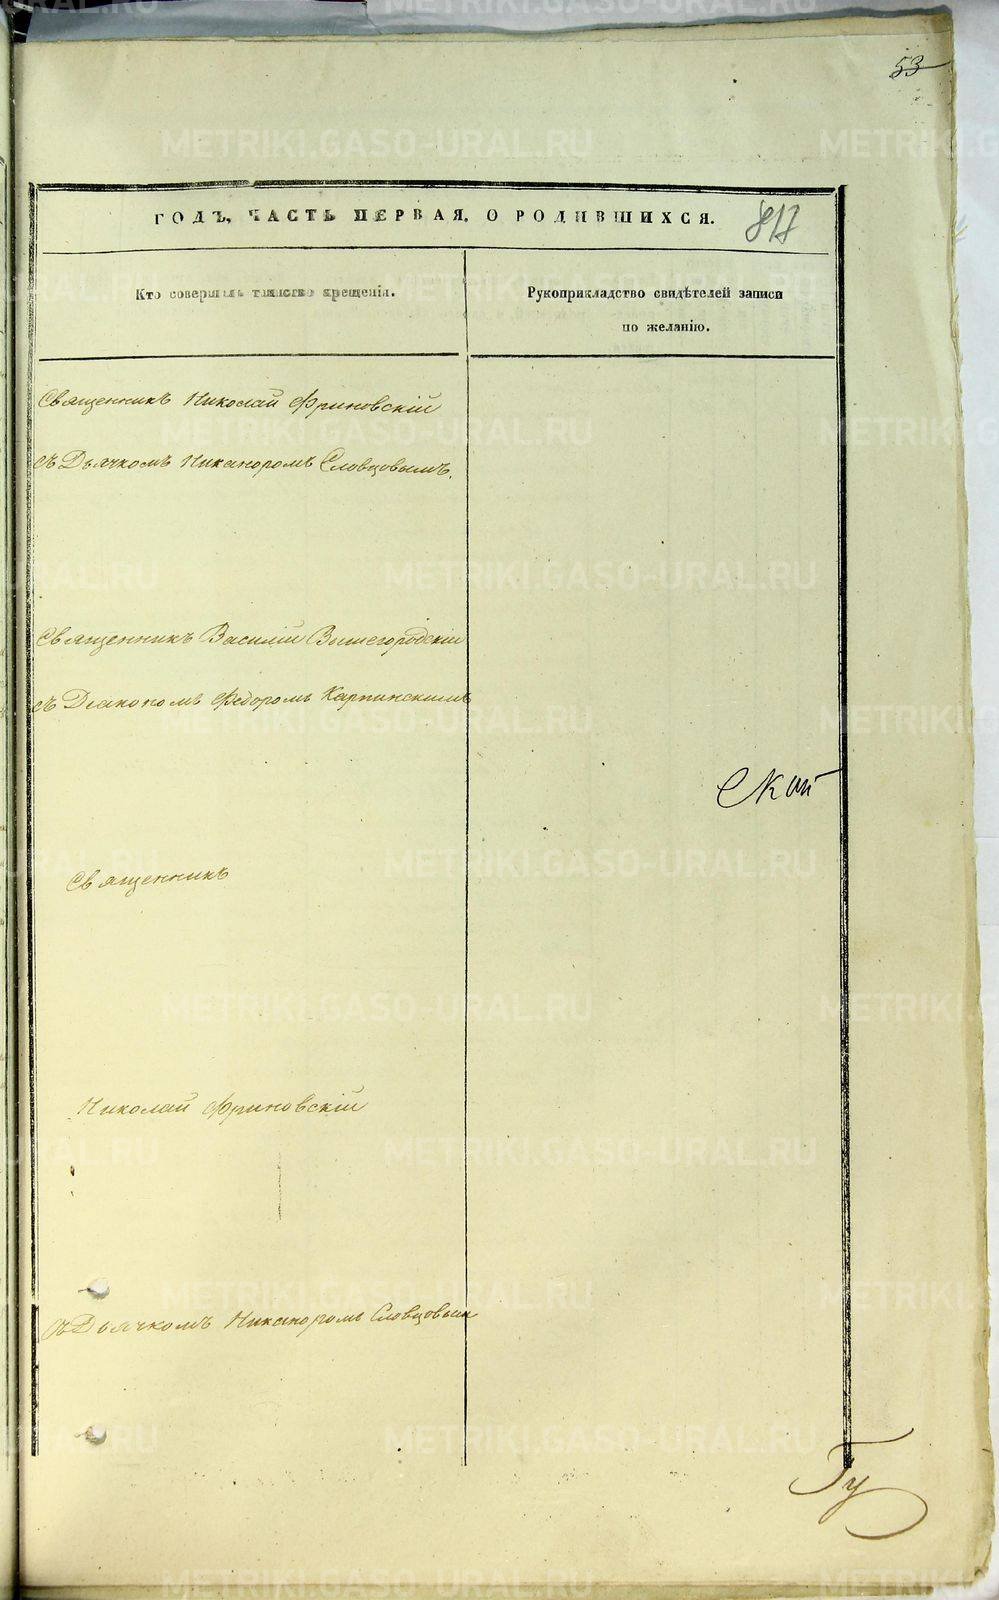 53
ГОДЪ, ЧАСТЬ ПЕРВАЯ, О РОДИВШИХСЯ. 817
Кто совершалъ таинство крещенія.
Рукоприкладство свидѣтелей записи
по желанію.
Священникъ Николай Фриновскій
съ Дьячкомъ Никаноромъ Словцовымъ.
Священникъ Василій Вышегородскій
съ Діакономъ Федоромъ Карпинскимъ
ской
Священникъ
Николай Фриновскій
съ Дьячкомъ Никаноромъ Словцовым
Гу
METRIKI.GASO-URAL.RU